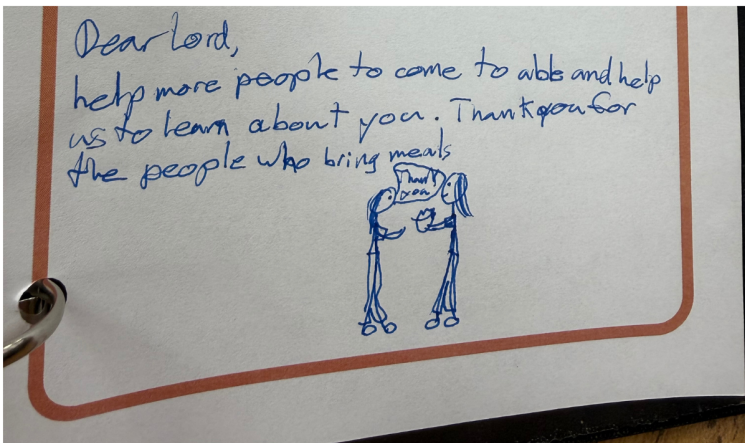 Dear Lord,
help more people to come to abb and help
us to learn about you. Thank you for
the people who bring meals
Thank
you